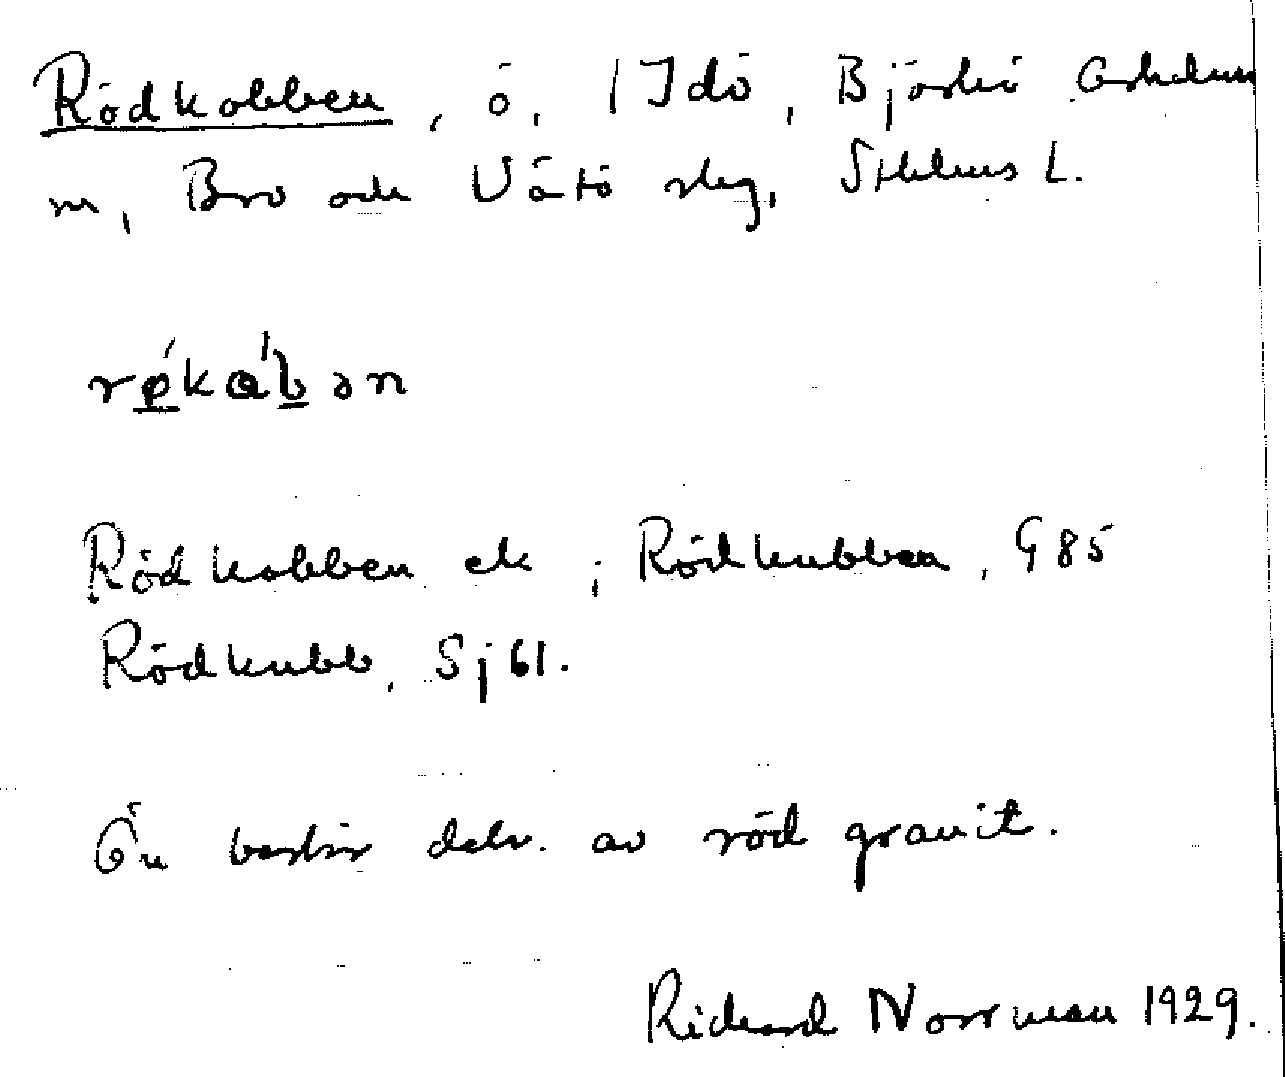 Rödkobben, ö, 1 Idö, Björkö Arholma
m, Bro och Vätö slg, Sthlms L.
rǿkɑ́bən
Rödkobben ek ; Rödkubben, G85
Rödkubb, Sj61.
Ön består delv. av röd granit.
Richard Norrman 1929.